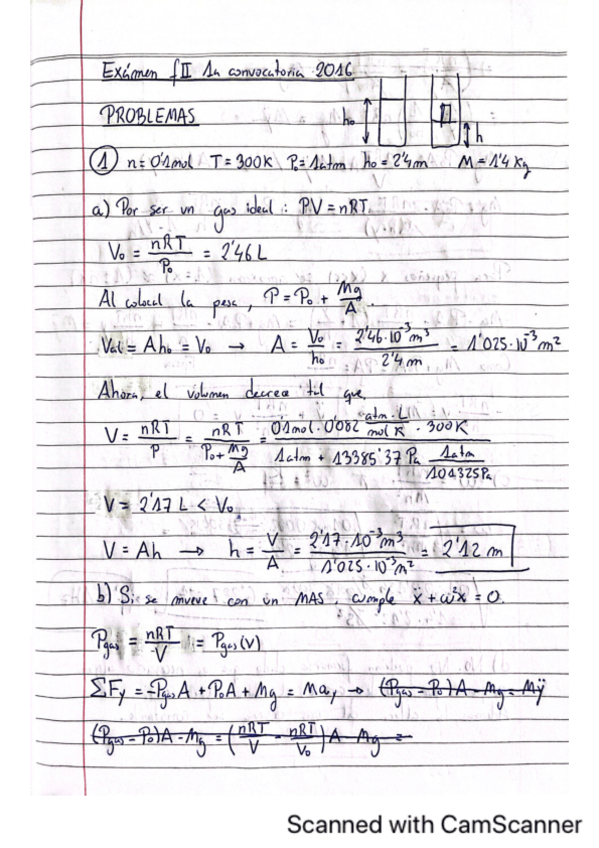 Exámen fII 1a convocatoria 2016
PROBLEMAS
h₀ h
① n = 0'1mol T = 300K P₀ = 1atm h₀ = 2'4m M = 1'4 Kg
a) Por ser un gas ideal : PV = nRT
V₀ = nRT/P₀ = 2'46 L
Al colocal la pesa, P = P₀ + Mg/A
Val = Ah₀ = V₀ → A = V₀/h₀ = 2'46·10⁻³m³/2'4m = 1'025·10⁻³m²
Ahora, el volumen decrea tal que,
V = nRT/P = nRT/(P₀ + Mg/A) = (0'1mol · 0'082 atm·L/mol K · 300K)/(1atm + 13385'37 Pa · 1atm/101325Pa)
V = 2'17 L < V₀
V = Ah → h = V/A = 2'17·10⁻³m³/1'025·10⁻³m² = 2'12 m
b) Si se mueve con un MAS, cumple ẍ + ω²x = 0.
Pgas = nRT/V = Pgas(V)
ΣFy = -PgasA + P₀A + Mg = May → (Pgas - P₀)A - Mg = Mÿ
(Pgas - P₀)A - Mg = (nRT/V - nRT/V₀)A - Mg =
Scanned with CamScanner